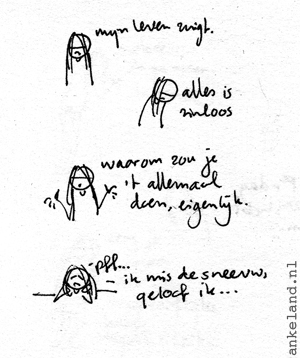 mijn leven zuigt.
alles is
zinloos
waarom zou je
't allemaal
doen, eigenlijk.
pff...
ik mis de sneeuw,
geloof ik...
ankeland.nl